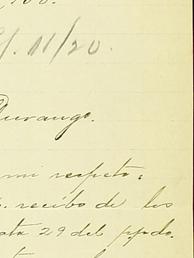 11/20.
Durango.
mi respeto:
recibo de los
ata 29 del ppdo.